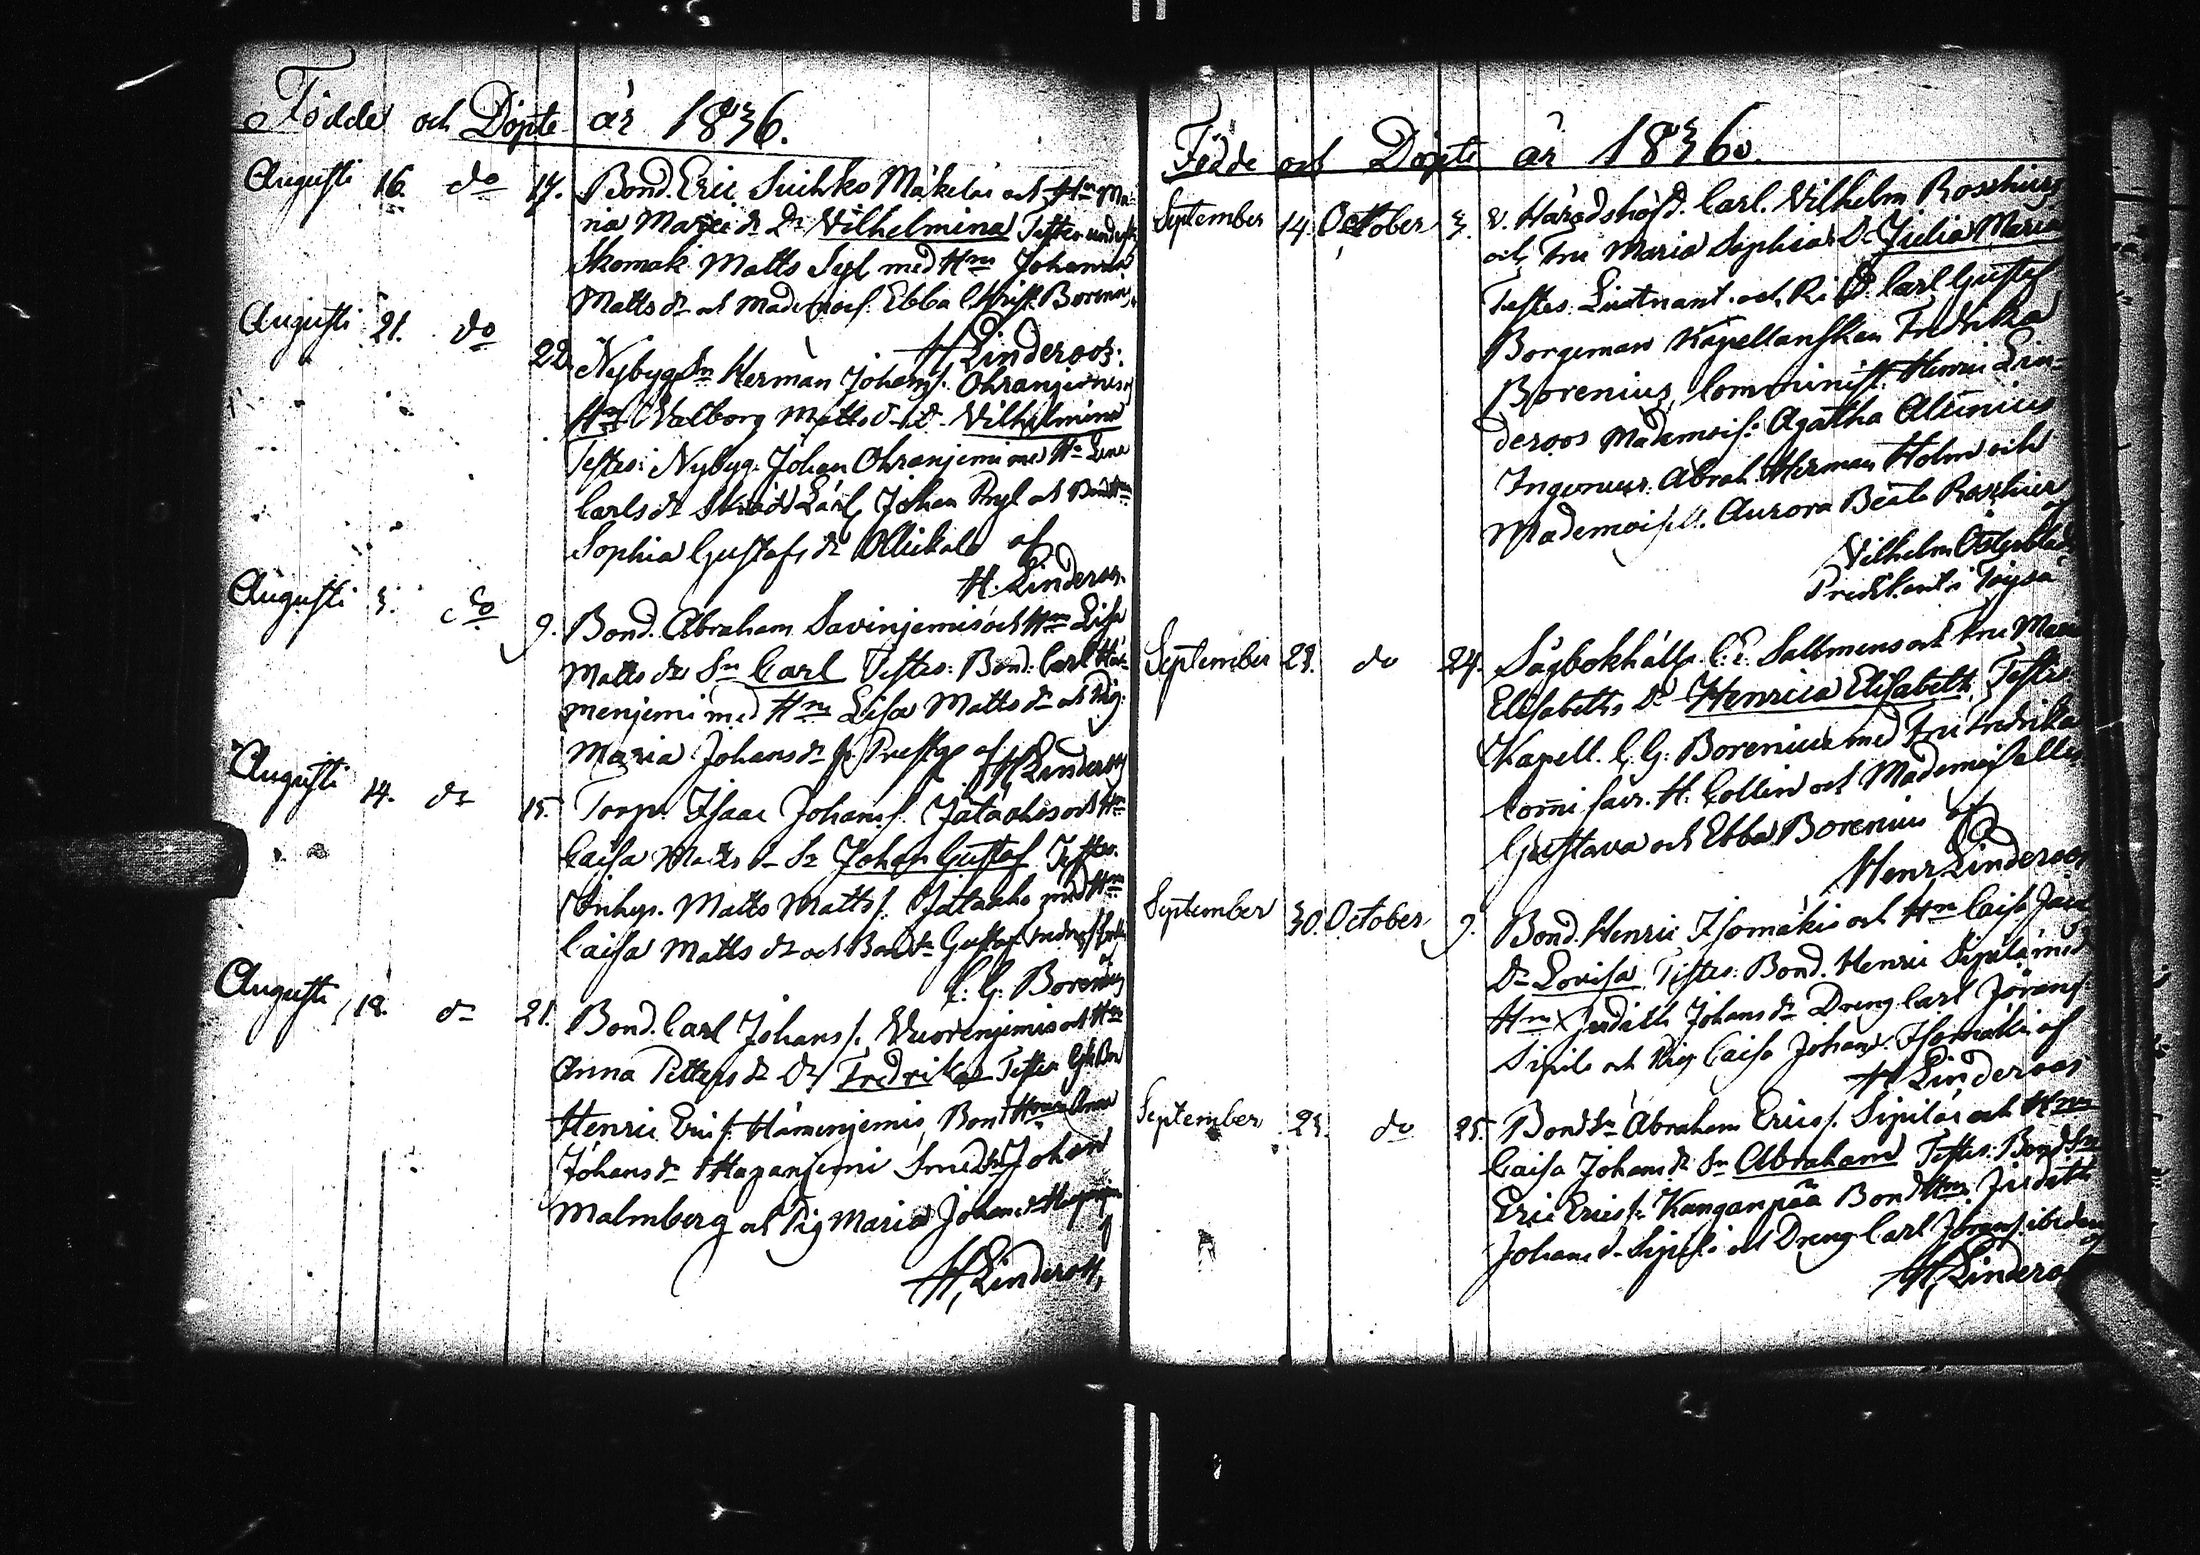 Födde och Döpte år 1836.
Augusti 16. do 17. Bond. Eric Mäkelas och Hn Ma-
ria Dr Vilhelmina Testes
Skomak. Matts Syl med Hn Johanna
Matts dr och Ebba Christ. Boreni
H Linderoos.
Augusti 21. do 22. Nybyg Sn Herman Johans s. Ohranjemis
Hn Valborg Matts dr Vilhelmina
Testes: Nybyg. Johan Ohranjemi med Hn Lena
Carls dr Johan Pryl och
Sophia Gustafs dr Ollickala af
H. Linderos.
Augusti 3. do 9. Bond. Abraham Savinjemis och Hn Lisa
Matts drs Sn Carl Testes: Bond. Carl
menjemi med Hn Lisa Matts dr och Pig.
Maria Johans dr fr. Prestg. af H Linderoos
Augusti 14. do 15. Torp. Isaac Johans s. Jätaahos och Hn
Caisa Matts dr Sn Johan Gustaf Testes.
Inhys. Matts Matts s. Jätaaho med Hn
Caisa Matts dr och Bond Sn Gustaf
af
C. G. Borenius
Augusti 18. do 21. Bond. Carl Johans s. Vuorenjemis och Hn
Anna Petters dr Dr Fredrika Testes
Henric Erics s. Hämenjemis, Bond Hn Anna
Johans dr Hapanjemi Smed Johan
Malmberg och Pig Maria Johans dr
H. Linderoos
Födde och Döpte år 1836.
September 14. October 3. v. Häradshöfd. Carl. Vilhelm Roschiers
och Fru Maria Sophias Dr Julia Maria
Testes: Lieutnant och Carl Gustaf
Borgeman Kapellanskan Fredrika
Borenius, Comminist. Henric Lin-
deroos Mademois: Agatha Alcenius
Ingenieur. Abrah. Herman Holm och
Mademois.lle Aurora Beata Roschier
af
Vilhelm Österbladh
Predikant i Töysä
September 23. do 24. Sågbokhåll. C. E. Sallmens och Fru Maria
Elisabeths Dr Henrica Elisabeth, Testes
Kapell. C. G. Borenius med Fru Fredrika
Commissair. H. Collin och Mademoiselle
Gustava och Ebba Borenius af
Henr Linderoos
September 30. October 9. Bond. Henric Isomäkis och Hn Caisa
Dr Lovisa Testes: Bond. Henric Sipilä med
Hn Judith Johans dr Dreng Carl Jörans s.
Sipilä och Pig Caisa Johans dr Isomäki af
H Linderoos
September 23. do 25. Bond Sn Abraham Erics s. Sipiläs och Hn
Caisa Johans dr Sn Abraham Testes. Bond Sn
Eric Erics s. Kanganpää Bond Hn Judith
Johans dr Sipilä och Dreng Carl Jörans s. ibidem
af
H. Linderoos